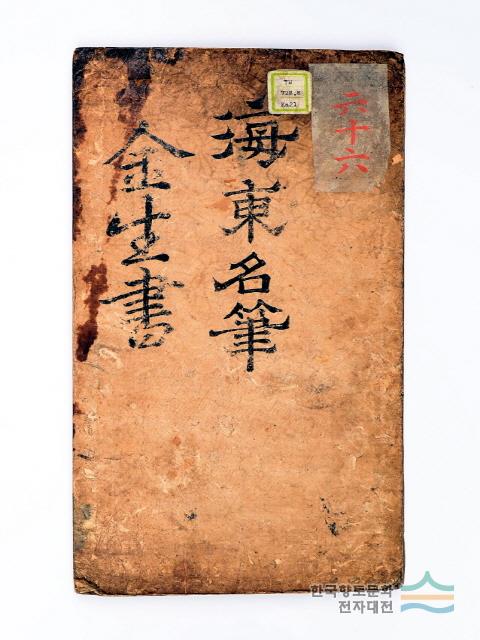 六十六
海東名筆
金生書
한국향토문화
전자대전